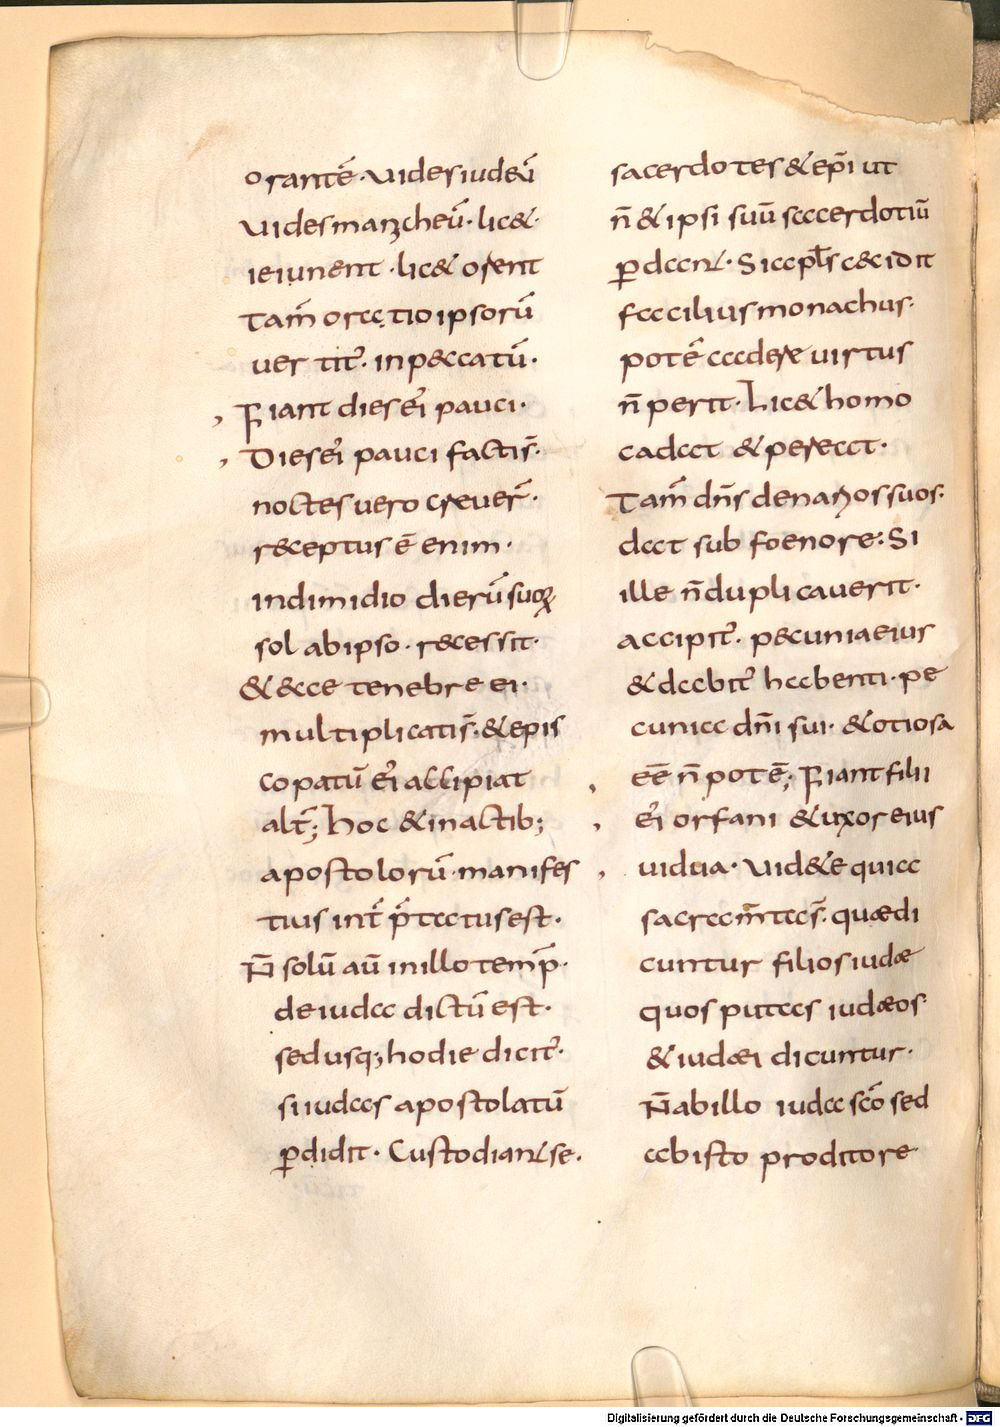 orantē· uides iudeū́
uides manicheū́· lic&·
ieiunent · lic& orent
Tam̄ oratio ipsorū́
uertit᷑· in peccatū·
Fiant dies ei᷑ pauci·
Dies ei᷑ pauci factis̄·
noctes uero creuer̄·
receptus ē enim·
in dimidio dierū suoꝝ
sol ab ipso · recessit·
& ecce tenebre ei·
multiplicatis̄· & epis
copatū ei᷑ accipiat
alt̄; hoc & in actib;
apostolorū· manifes
tius int̄ p̄tatus est·
N̄ solū aū in illo temp̄·
de iuda dictū est·
sed usq; hodie dicit᷑·
si iudas apostolatū
ꝑdidit· Custodiant se·
sacerdotes & ep̄i ut
n̄ & ipsi suū sacerdotiū
ꝑdant· Si apl̄s cecidit
facilius monachus·
potē cadere uirtus
n̄ perit· Lic& homo
cadat & pereat·
Tam̄ dn̄s denarios suos·
dat sub foenore: Si
ille n̄ duplicauerit·
accipit᷑· pecunia eius
& dabit᷑ habenti· pe
cunia dn̄i sui· & otiosa
eē n̄ potē; Fiant filii
ei᷑ orfani & uxor eius
uidua· Uidete quia
sacram̄tas̄· quæ di
cuntur filios iudæ
quos putas iudæos·
& iudæi dicuntur·
N̄ ab illo iuda sc̄o sed
ab isto proditore
Digitalisierung gefördert durch die Deutsche Forschungsgemeinschaft · DFG